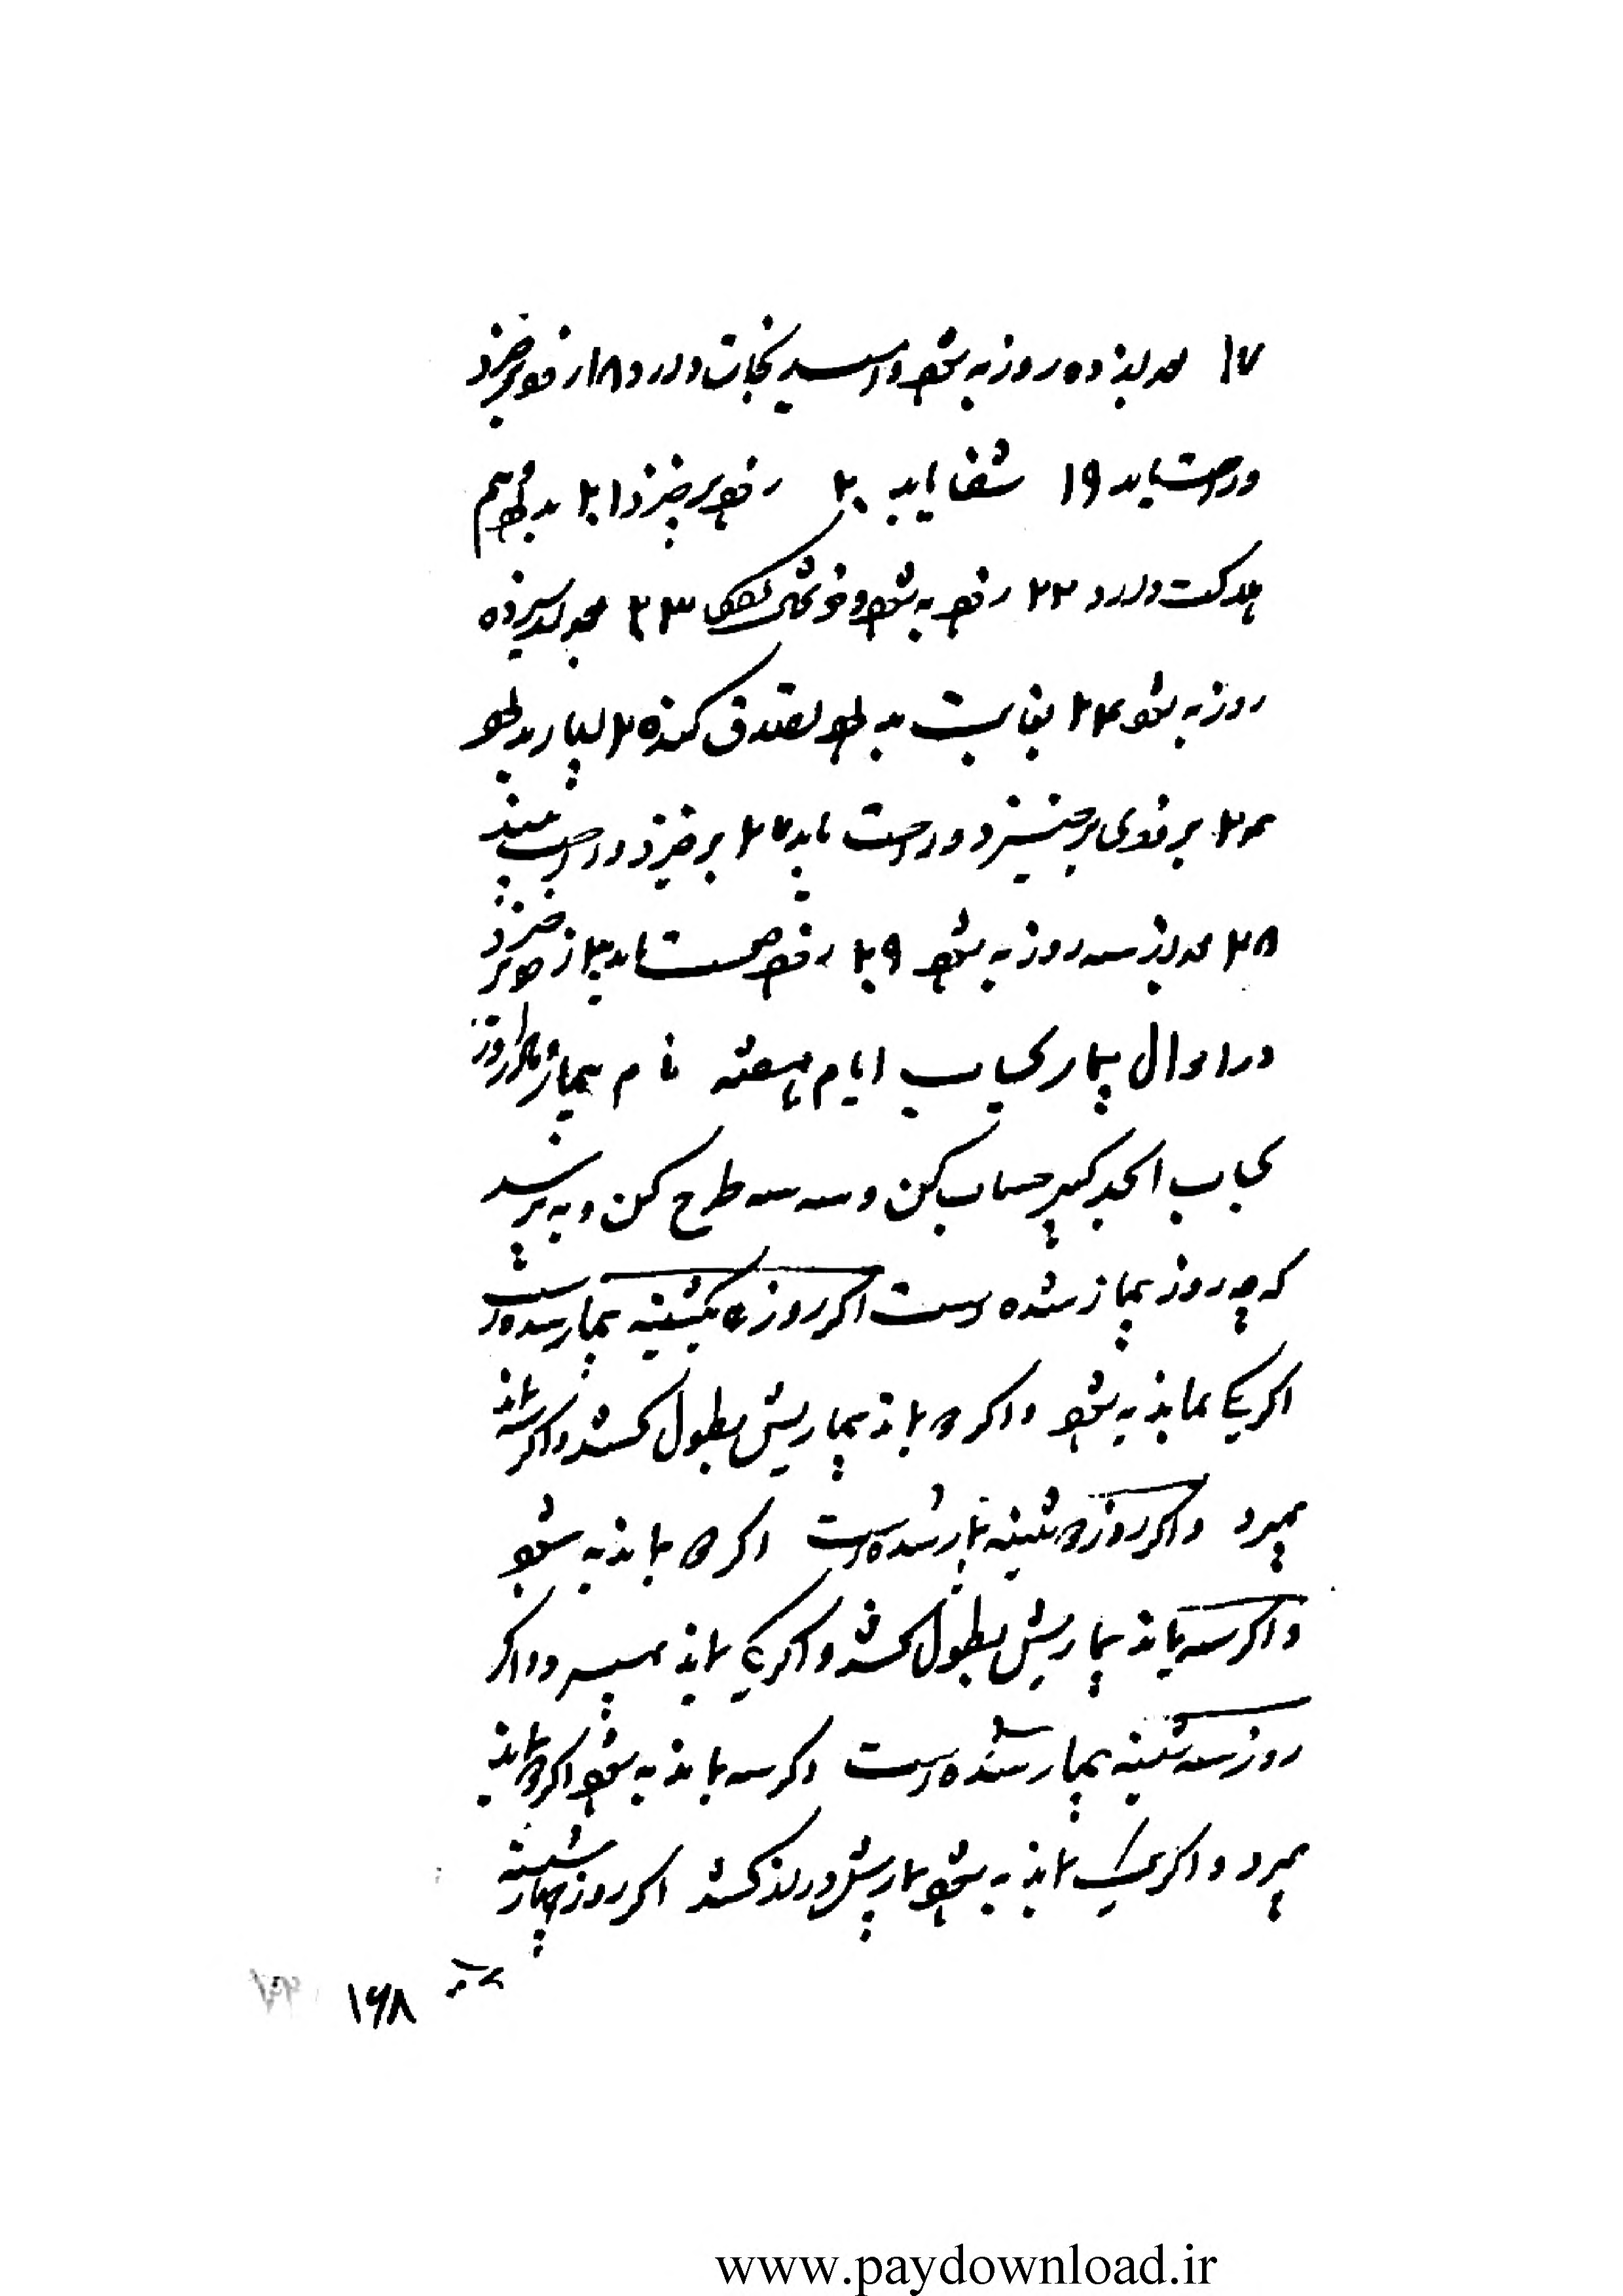 ۱۷ بعد از ده روز به شود و امید نجات دارد ۱۸ زود برخیزد
و راحت یابد ۱۹ شفا یابد ۲۰ زود برخیزد ۲۱ بد بود بیم
هلاکت دارد ۲۲ زود به شود و خوشحال ۲۳ بعد از سیزده
روز به شود ۲۴ بغایت بد بود تصدق کند ۲۵ بسیار بد بود
۲۶ بزودی برخیزد و راحت یابد ۲۷ برخیزد و راحت بیند
۲۸ بعد از سه روز به شود ۲۹ زود صحت یابد ۳۰ زود برخیزد
در احوال بیمار بحساب ایام هفته نام بیمار و مادر او را
بحساب ابجد کبیر حساب کن و سه سه طرح کن و به پرسند
که چه روز بیمار شده است اگر روز یکشنبه بیمار شده است
اگر یکی بماند به شود و اگر ۲ بماند بیماریش بطول کشد و اگر سه بماند
بمیرد و اگر روز ۲ شنبه بیمار شده است اگر ۲ بماند به شود
و اگر سه بماند بیماریش بطول کشد و اگر یکی بماند بمیرد و اگر
روز سه شنبه بیمار شده است اگر سه بماند به شود اگر ۲ بماند
بمیرد و اگر یک بماند به شود بیماریش دراز کشد اگر روز چهارشنبه
۱۶۸
www.paydownload.ir